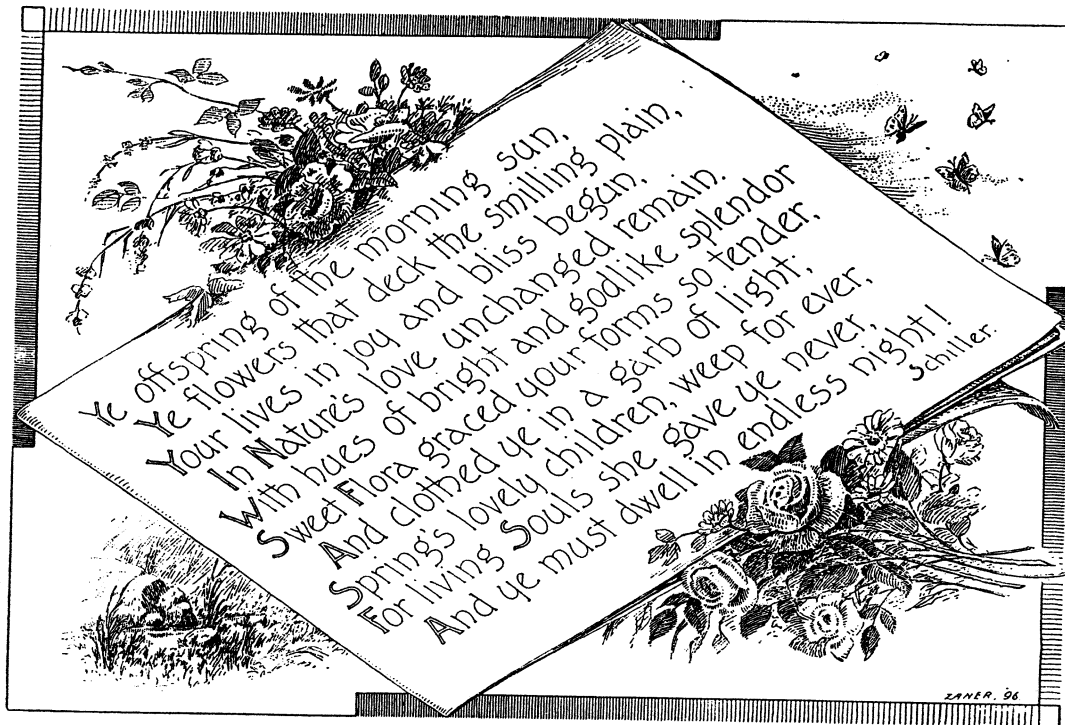 Ye offspring of the morning sun,
Ye flowers that deck the smiling plain,
Your lives in joy and bliss begun,
In Nature's love unchanged remain.
With hues of bright and godlike splendor
Sweet Flora graced your forms so tender,
And clothed ye in a garb of light;
Spring's lovely children, weep for ever,
For living Souls she gave ye never,
And ye must dwell in endless night!
Schiller.
ZANER. '96